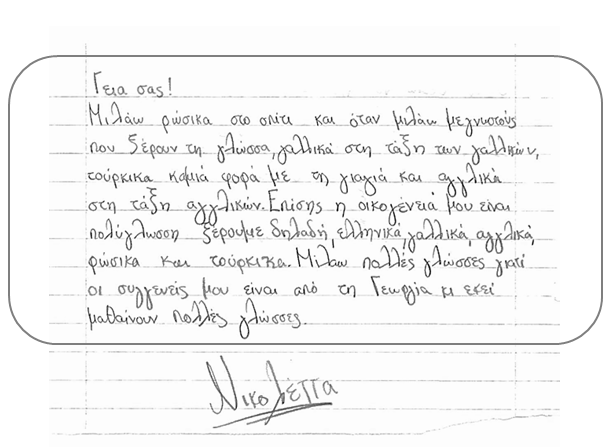 Γεια σας!
Μιλάω ρώσικα στο σπίτι και όταν μιλάω με γνωστούς
που ξέρουν τη γλώσσα, γαλλικά στη τάξη των γαλλικών,
τούρκικα καμιά φορά με τη γιαγιά και αγγλικά
στη τάξη αγγλικών. Επίσης η οικογένειά μου είναι
πολύγλωσση ξέρουμε δηλαδή, ελληνικά, γαλλικά, αγγλικά,
ρώσικα και τούρκικα. Μιλάω πολλές γλώσσες γιατί
οι συγγενείς μου είναι από τη Γεωργία κι εκεί
μαθαίνουν πολλές γλώσσες.
Νικολέττα